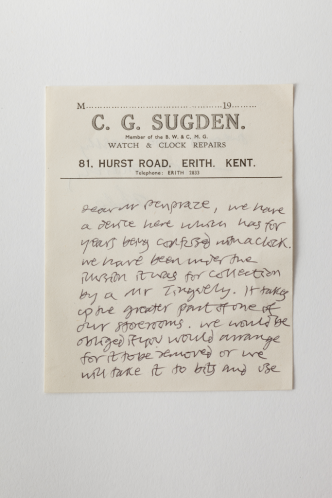 M.................................................19.........
C. G. SUGDEN.
Member of the B. W. & C. M. G.
WATCH & CLOCK REPAIRS
81, HURST ROAD, ERITH, KENT.
Telephone: ERITH
Dear Mr Penpraze, we have
a device here which has for
years being confused with a clock.
We have been under the
illusion it was for collection
by a Mr Tinguely. It takes
up the greater part of one of
our storerooms. We would be
obliged if you would arrange
for it to be removed or we
will take it to bits and use